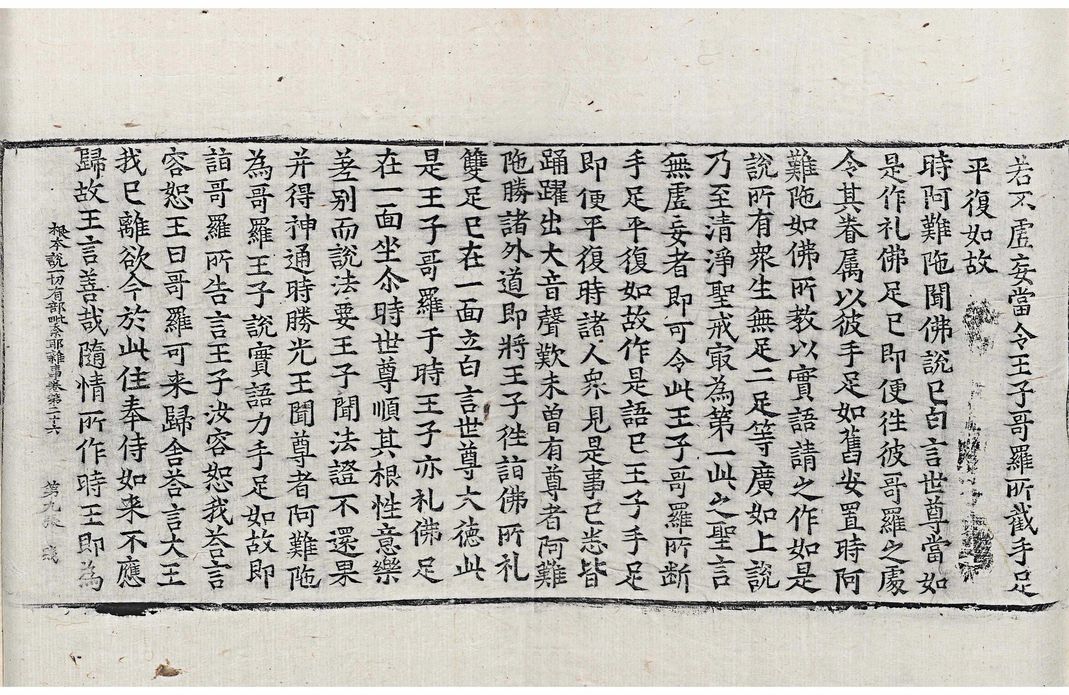 若不虛妄當令王子哥羅所截手足
平復如故
時阿難陁聞佛說已白言世尊當如
是作礼佛足已即便往彼哥羅之處
令其眷属以彼手足如舊安置時阿
難陁如佛所教以實語請之作如是
說所有衆生無足二足等廣如上說
乃至清淨聖戒㝡為第一此之聖言
無虛妄者即可令此王子哥羅所斷
手足平復如故作是語已王子手足
即便平復時諸人衆見是事已悉皆
踊躍出大音聲歎未曽有尊者阿難
陁勝諸外道即將王子徃詣佛所礼
雙足已在一面立白言世尊大德此
是王子哥羅于時王子亦礼佛足
在一面坐尒時世尊順其根性意樂
差别而說法要王子聞法證不還果
并得神通時勝光王聞尊者阿難陁
為哥羅王子說實語力手足如故即
詣哥羅所告言王子汝容恕我荅言
容恕王曰哥羅可来歸舍荅言大王
我已離欲今於此住奉侍如来不應
歸故王言善哉隨情所作時王即為
根本說一切有部毗奈耶雜事卷第二十六 第九張